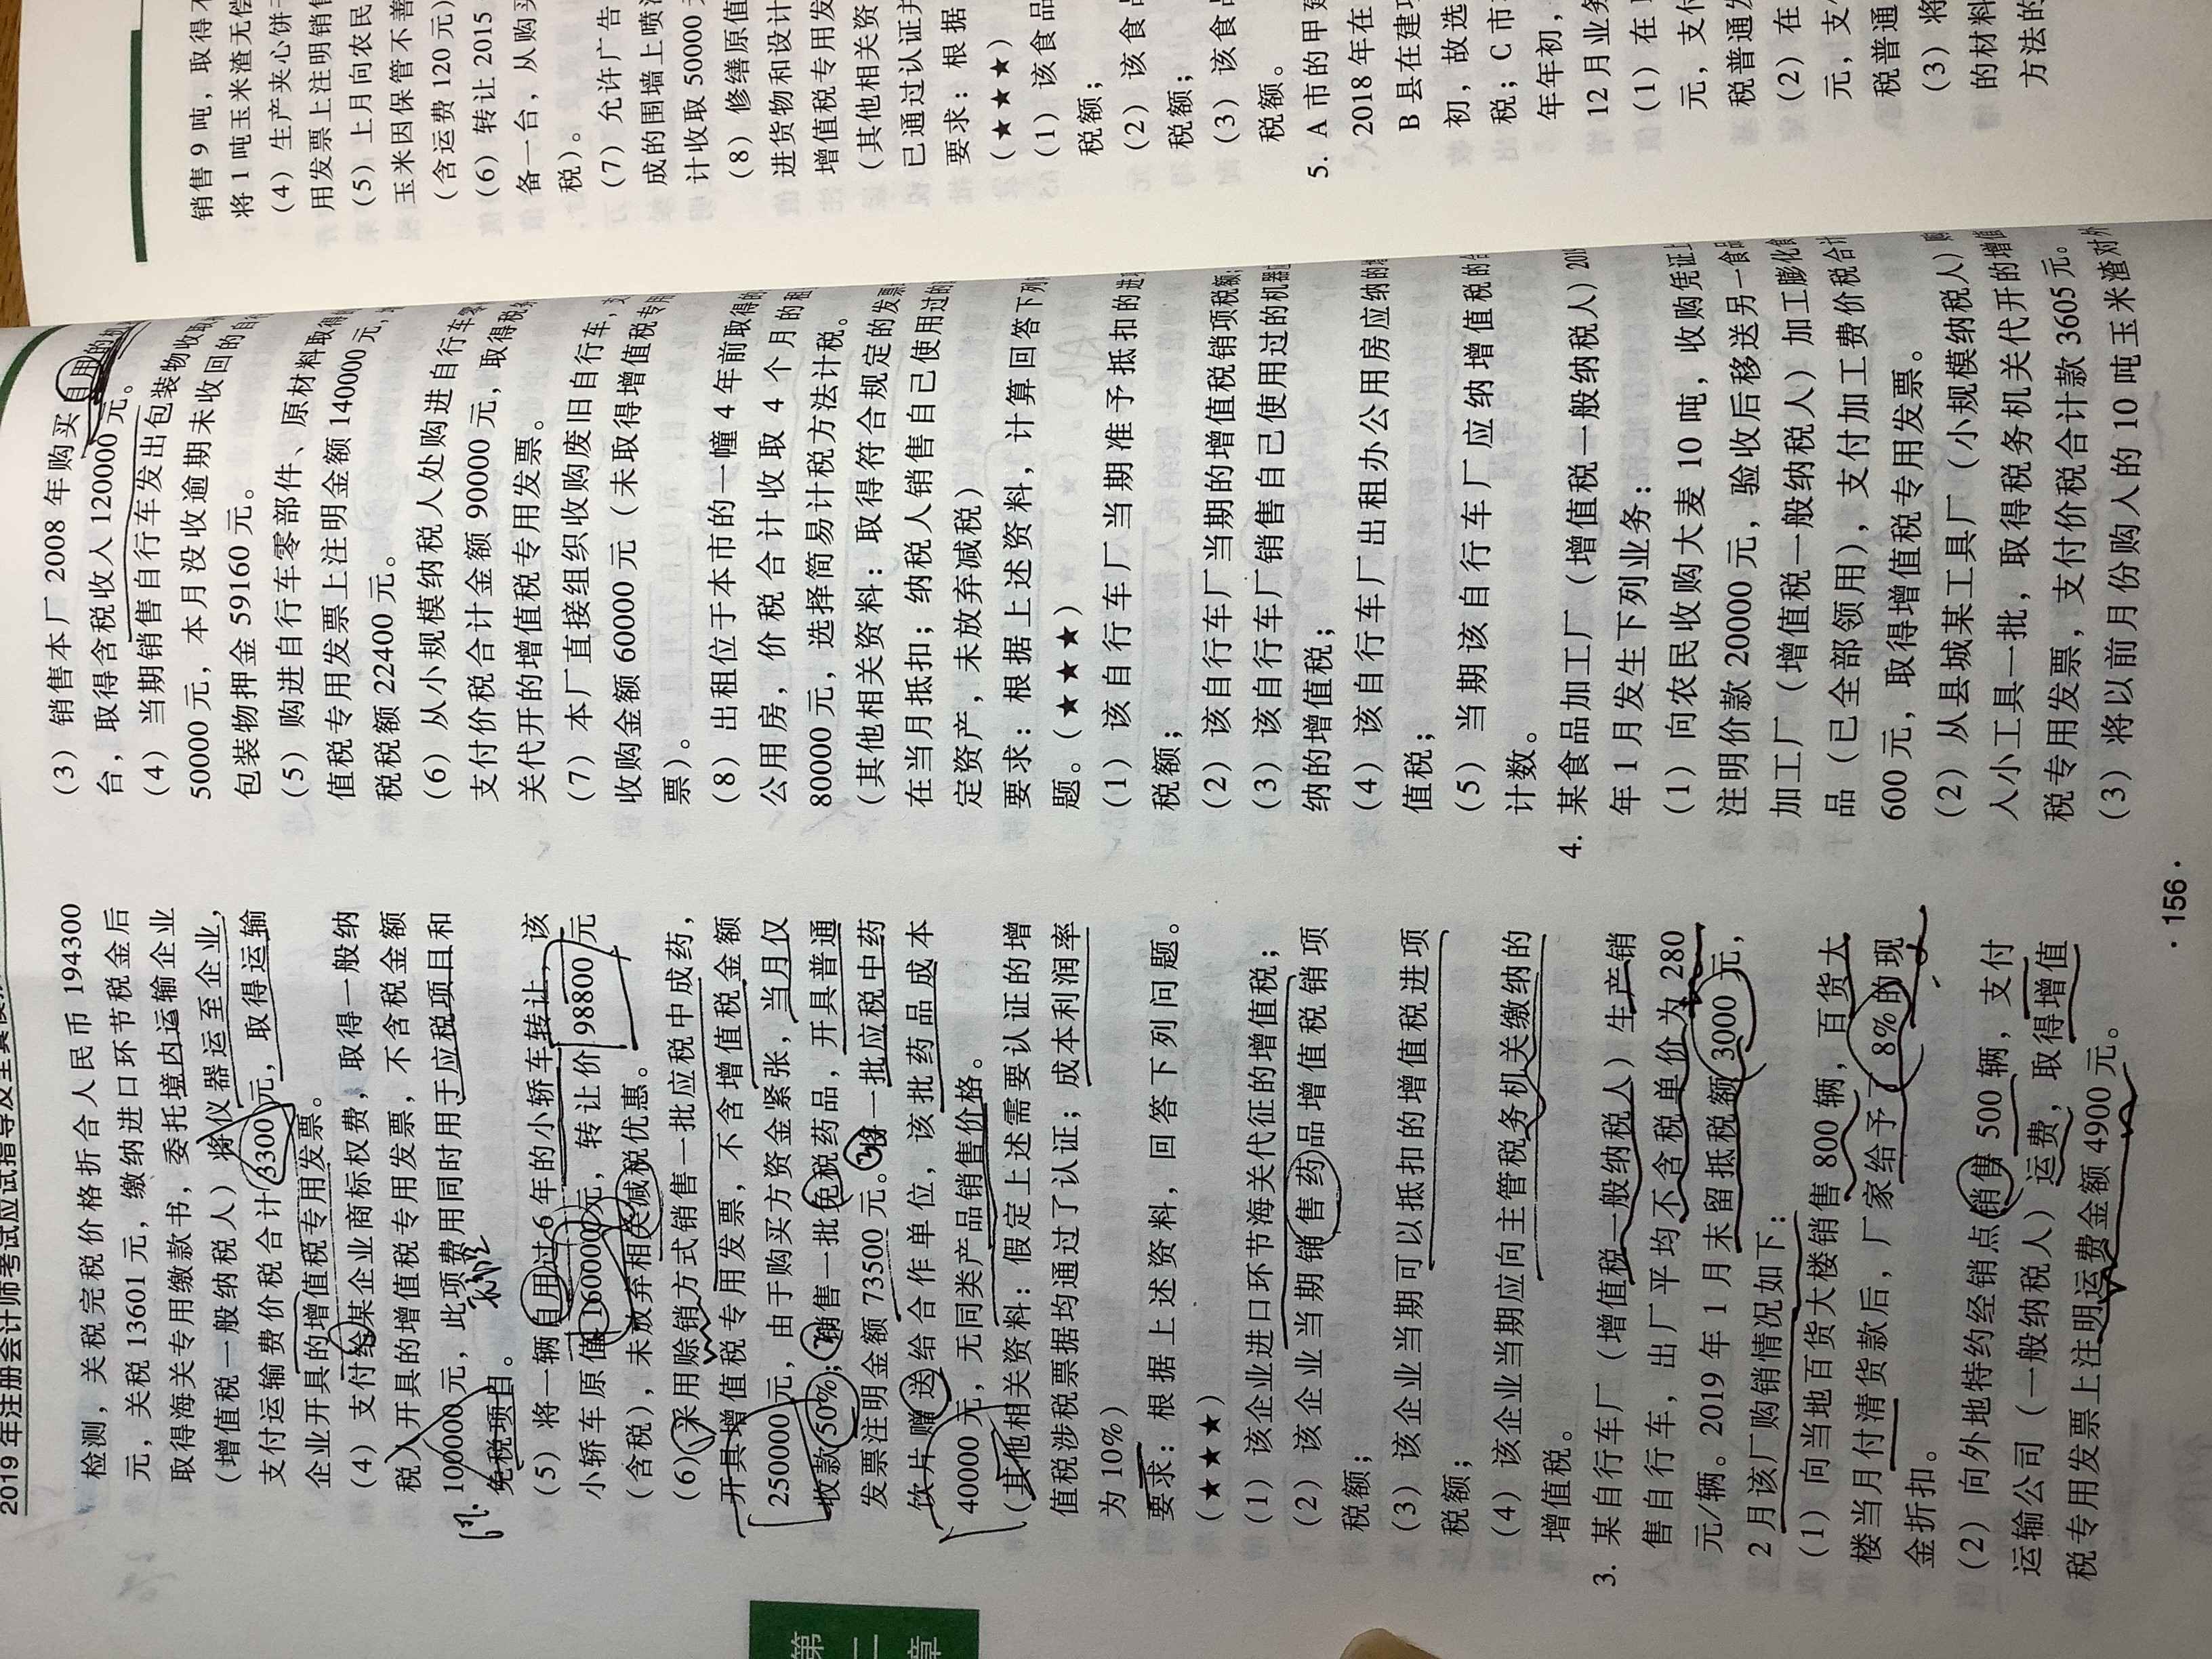 2019年注册会计师考试应试指导及全真模
检测，关税完税价格折合人民币 194300
元，关税 13601 元，缴纳进口环节税金后
取得海关专用缴款书，委托境内运输企业
（增值税一般纳税人）将仪器运至企业，
支付运输费价税合计 3300 元，取得运输
企业开具的增值税专用发票。
（4）支付给某企业商标权费，取得一般纳
税人开具的增值税专用发票，不含税金额
100000 元，此项费用同时用于应税项目和
免税项目。
（5）将一辆自用过 6 年的小轿车转让，该
小轿车原值 160000 元，转让价 98800 元
（含税），未放弃相关减税优惠。
（6）采用赊销方式销售一批应税中成药，
开具增值税专用发票，不含增值税金额
250000 元，由于购买方资金紧张，当月仅
收款 50%；销售一批免税药品，开具普通
发票注明金额 73500 元。将一批应税中药
饮片赠送给合作单位，该批药品成本
40000 元，无同类产品销售价格。
（其他相关资料：假定上述需要认证的增
值税涉税票据均通过了认证；成本利润率
为 10%）
要求：根据上述资料，回答下列问题。
（★★★）
（1）该企业进口环节海关代征的增值税；
（2）该企业当期销售药品增值税销项
税额；
（3）该企业当期可以抵扣的增值税进项
税额；
（4）该企业当期应向主管税务机关缴纳的
增值税。
3. 某自行车厂（增值税一般纳税人）生产销
售自行车，出厂平均不含税单价为 280
元/辆。2019 年 1 月末留抵税额 3000 元，
2 月该厂购销情况如下：
（1）向当地百货大楼销售 800 辆，百货大
楼当月付清货款后，厂家给予了 8%的现
金折扣。
（2）向外地特约经销点销售 500 辆，支付
运输公司（一般纳税人）运费，取得增值
税专用发票上注明运费金额 4900 元。
（3）销售本厂 2008 年购买自用的机
台，取得含税收入 120000 元。
（4）当期销售自行车发出包装物收取
50000 元，本月没收逾期未收回的自行
包装物押金 59160 元。
（5）购进自行车零部件、原材料取得
值税专用发票上注明金额 140000 元，
税税额 22400 元。
（6）从小规模纳税人处购进自行车零
支付价税合计金额 90000 元，取得税务
关代开的增值税专用发票。
（7）本厂直接组织收购废旧自行车，支
收购金额 60000 元（未取得增值税专用
票）。
（8）出租位于本市的一幢 4 年前取得的
公用房，价税合计收取 4 个月的租
80000 元，选择简易计税方法计税。
（其他相关资料：取得符合规定的发票
在当月抵扣；纳税人销售自己使用过的
定资产，未放弃减税）
要求：根据上述资料，计算回答下列
题。（★★★）
（1）该自行车厂当期准予抵扣的进
税额；
（2）该自行车厂当期的增值税销项税额；
（3）该自行车厂销售自己使用过的机器
纳的增值税；
（4）该自行车厂出租办公用房应纳的
值税；
（5）当期该自行车厂应纳增值税的
计数。
4. 某食品加工厂（增值税一般纳税人）201
年 1 月发生下列业务：
（1）向农民收购大麦 10 吨，收购凭证上
注明价款 20000 元，验收后移送另一食品
加工厂（增值税一般纳税人）加工膨化食
品（已全部领用），支付加工费价税合计
600 元，取得增值税专用发票。
（2）从县城某工具厂（小规模纳税人）购
入小工具一批，取得税务机关代开的增值
税专用发票，支付价税合计款 3605 元。
（3）将以前月份购入的 10 吨玉米渣对外
·156·
第二章
销售 9 吨，取得不
将 1 吨玉米渣无偿
（4）生产夹心饼干
用发票上注明销售
（5）上月向农民
玉米因保管不善
（含运费 120 元）
（6）转让 2015
备一台，从购买
税）。
（7）允许广告
成的围墙上喷
计收取 50000
（8）修缮原值
进货物和设计
增值税专用发
（其他相关资
已通过认证并
要求：根据
（★★★）
（1）该食品
税额；
（2）该食品
税额；
（3）该食品
税额。
5. A 市的甲建
2018 年在
B 县在建项
初，故选
税；C 市
年年初，
12 月业务
（1）在
元，支付
税普通发
（2）在
元，支
税普通
（3）将
的材料
方法的